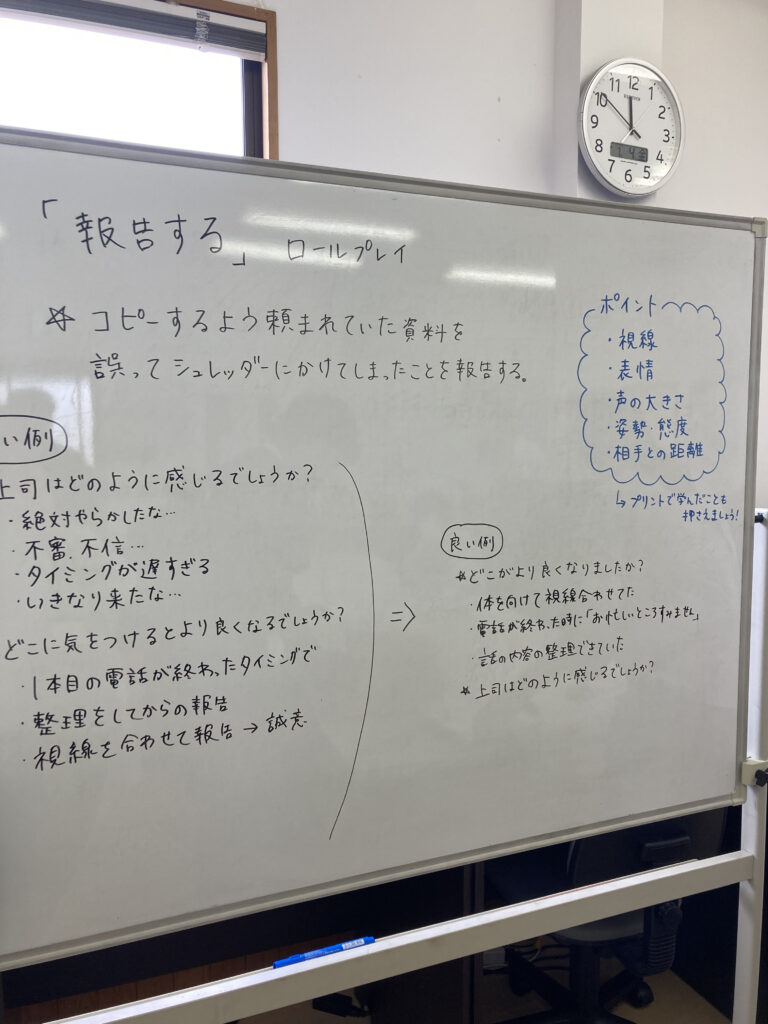 「報告する」 ロールプレイ
☆ コピーするよう頼まれていた資料を
誤ってシュレッダーにかけてしまったことを報告する。
ポイント
・視線
・表情
・声の大きさ
・姿勢・態度
・相手との距離
↳プリントで学んだことも
押さえましょう!
い例
上司はどのように感じるでしょうか?
・絶対やらかしたな…
・不審、不信…
・タイミングが遅すぎる
・いきなり来たな…
どこに気をつけるとより良くなるでしょうか?
・1本目の電話が終わったタイミングで
・整理をしてからの報告
・視線を合わせて報告→誠意
⇒
良い例
☆どこがより良くなりましたか?
・体を向けて視線合わせてた
・電話が終わった時に「お忙しいところすみません」
・話の内容の整理できていた
☆上司はどのように感じるでしょうか?
12
1
2
3
4
5
6
7
8
9
10
11